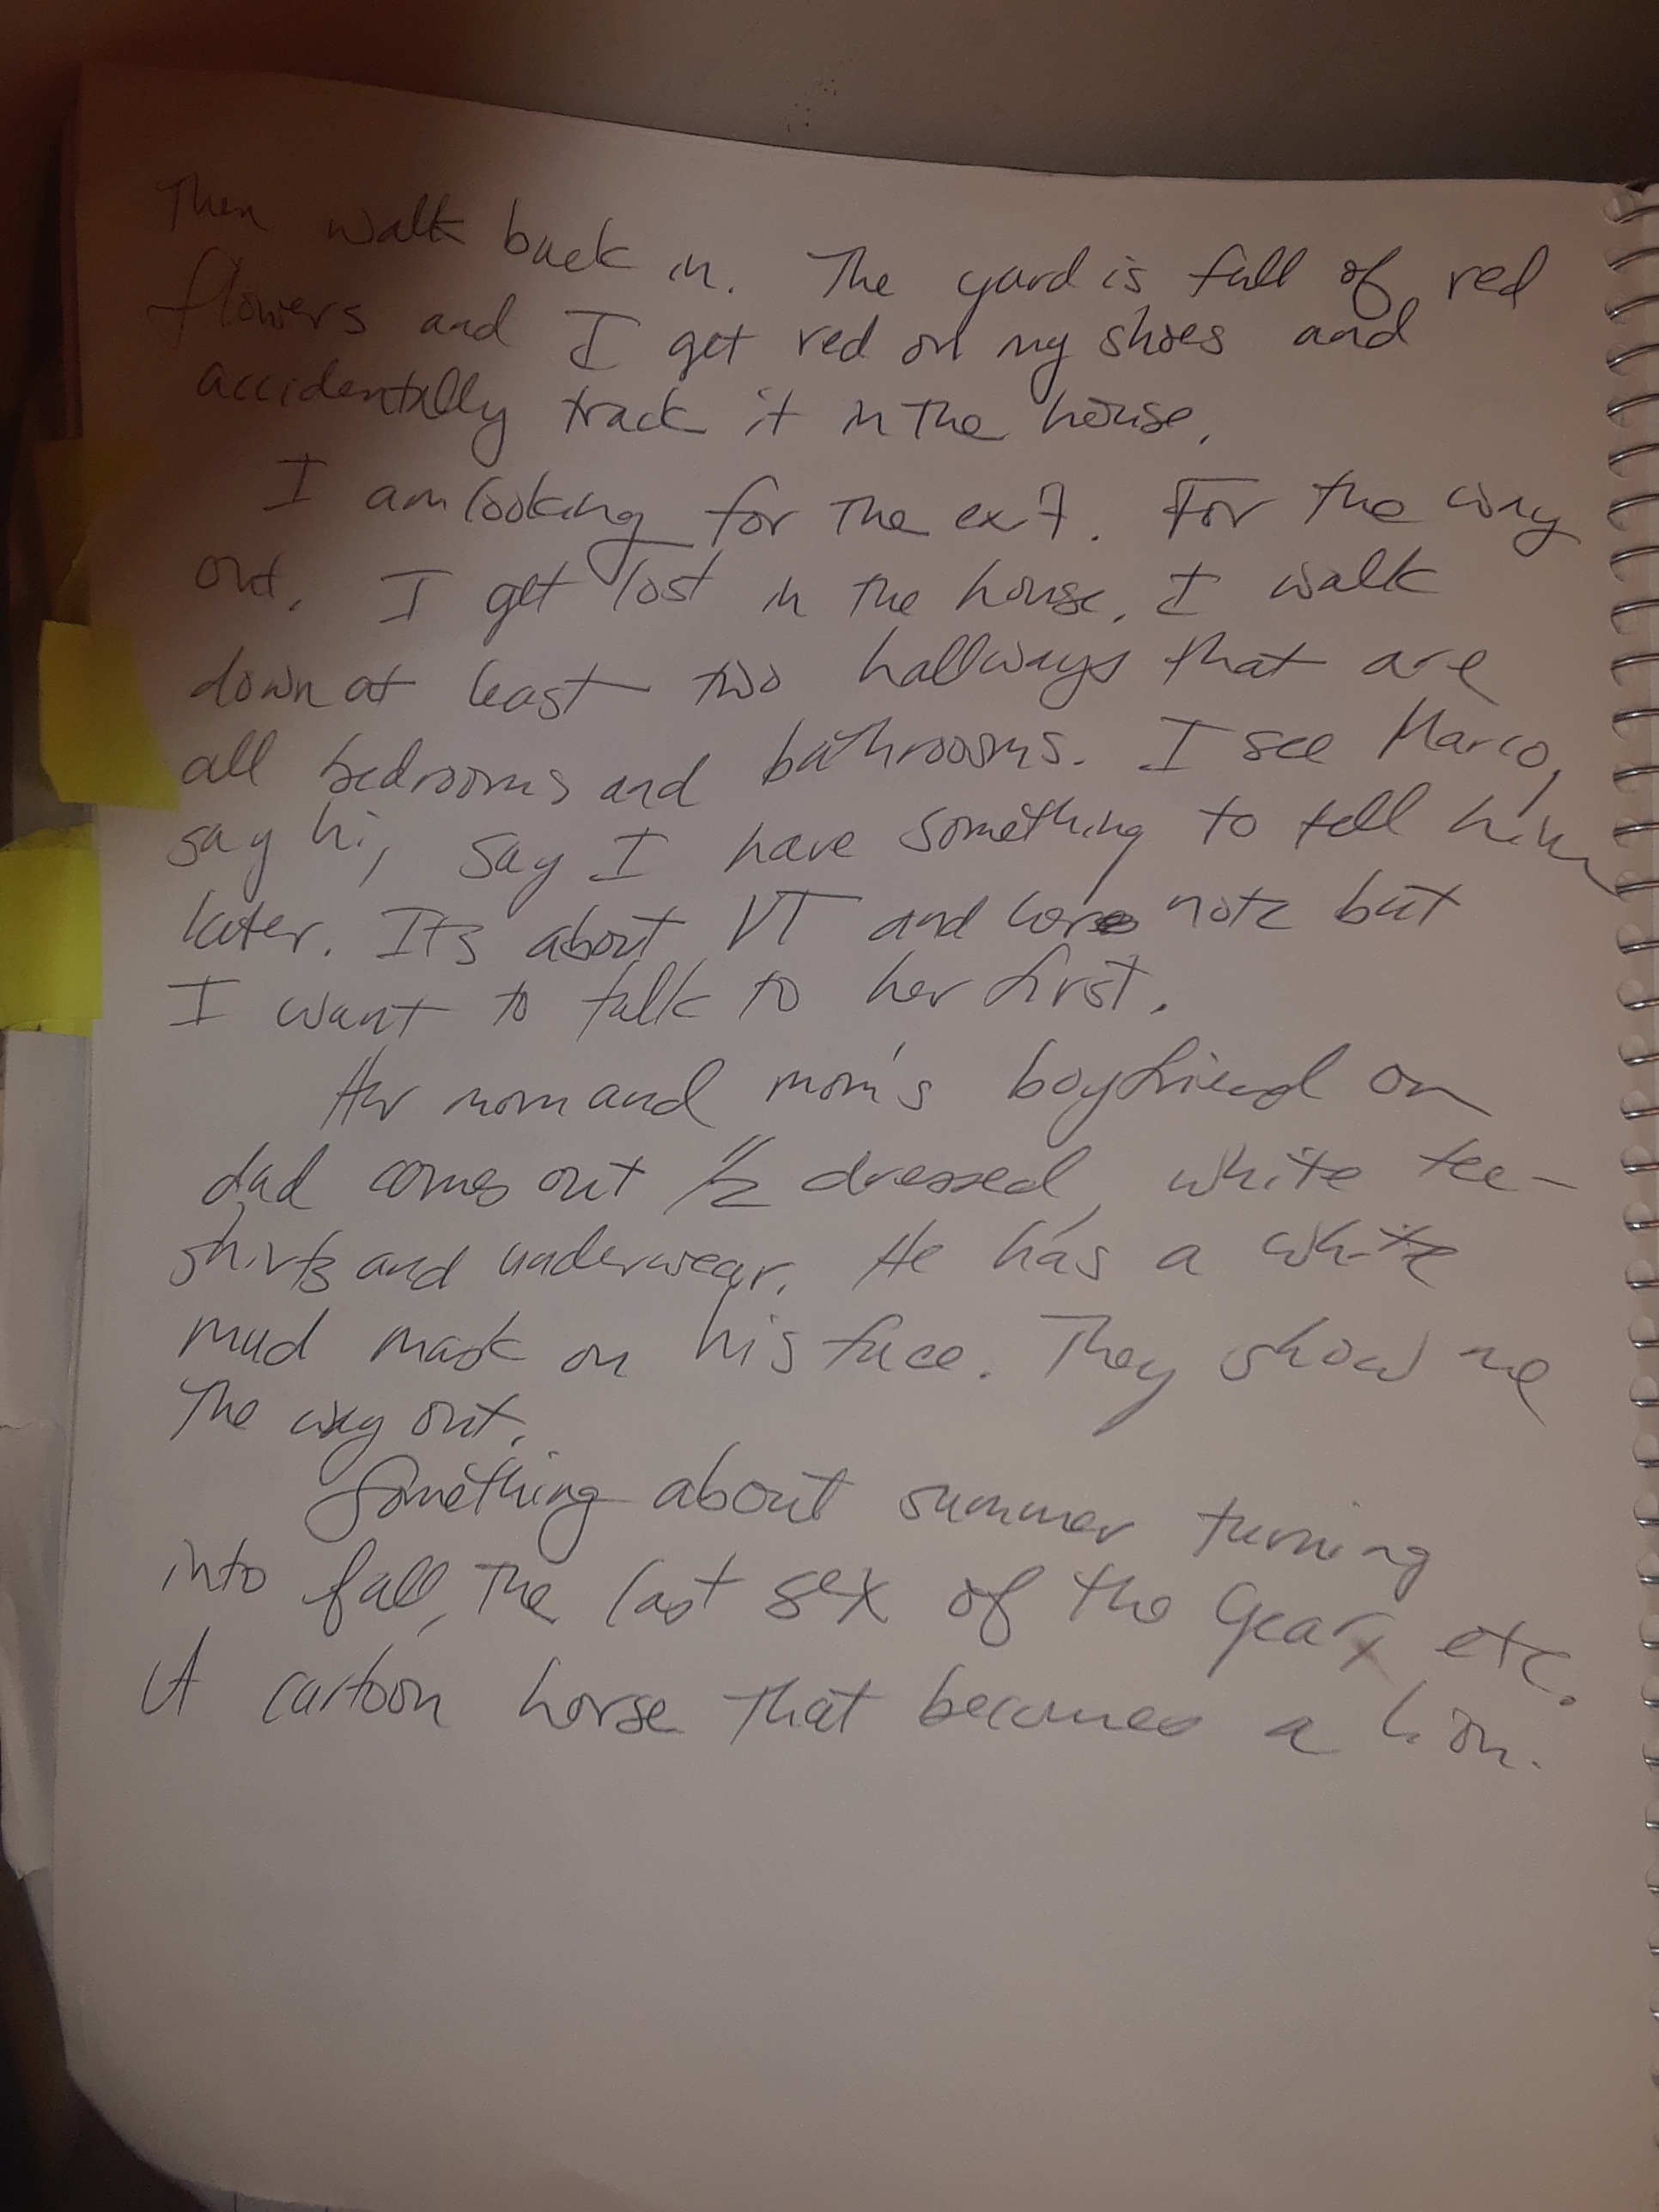 Then walk back in. The yard is full of red
flowers and I get red on my shoes and
accidentally track it in the house.
I am looking for the exit. For the way
out. I get lost in the house. I walk
down at least two hallways that are
all bedrooms and bathrooms. I see Marco,
say hi, say I have something to tell him
later. Its about VT and note but
I want to talk to her first.
Her mom and mom's boyfriend or
dad comes out 1/2 dressed, white tee-
shirts and underwear. He has a white
mud mask on his face. They show me
The way out.
Something about summer turning
into fall, The last sex of the year, etc.
A cartoon horse that becomes a lion.